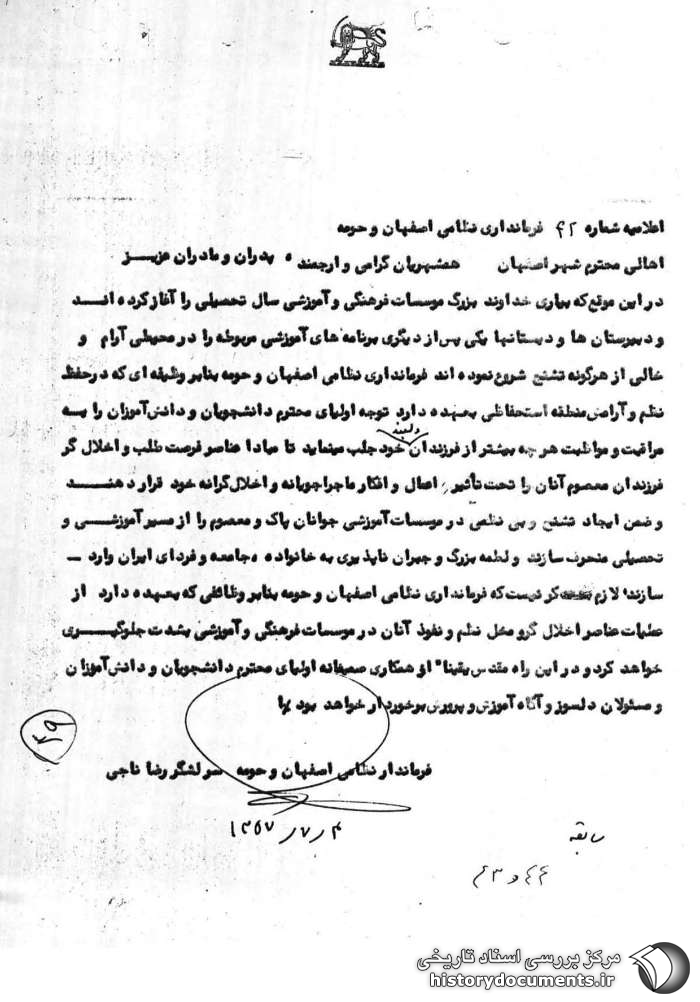 اعلامیه شماره ۴۲ فرمانداری نظامی اصفهان و حومه
اهالی محترم شهر اصفهان همشهریان گرامی و ارجمند ، پدران و مادران عزیــز
در این موقع که بیاری خداوند بزرگ موسسات فرهنگی و آموزشی سال تحصیلی را آغاز کرده انــد
و دبیرستان ها و دبستانها یکی پس از دیگری برنامه های آموزشی مربوطه را در محیطی آرام و
خالی از هرگونه تشنج شروع نموده اند فرمانداری نظامی اصفهان و حومه بنابر وظیفه ای که در حفظ
نظم و آرامش منطقه استحفاظی بعهده دارد توجه اولیای محترم دانشجویان و دانش آموزان را بــه
مراقبت و مواظبت هر چه بیشتر از فرزندان دلبند خود جلب مینماید تا مبادا عناصر فرصت طلب و اخلال گر
فرزندان معصوم آنان را تحت تأثیر اعمال و افکار ماجراجویانه و اخلال گرانه خود قرار دهنــد
و ضمن ایجاد تشنج و بی نظمی در موسسات آموزشی جوانان پاک و معصوم را از مسیر آموزشــی و
تحصیلی منحرف سازند و لطمه بزرگ و جبران ناپذیری به خانواده ، جامعه و فردای ایران وارد ــ
سازند لازم بتذکر نیست که فرمانداری نظامی اصفهان و حومه بنابر وظائفی که بعهده دارد از
عملیات عناصر اخلال گر و مخل نظم و نفوذ آنان در موسسات فرهنگی و آموزشی بشدت جلوگیــری
خواهد کرد و در این راه مقدس یقینا" از همکاری صمیمانه اولیای محترم دانشجویان و دانش آموزان
و مسئولان دلسوز و آگاه آموزش و پرورش برخوردار خواهد بود
فرماندار نظامی اصفهان و حومه سرلشگر رضا ناجی
۱۳۵۷/۷/۴
سابقه
۴۴ و ۴۳
مرکز بررسی اسناد تاریخی
historydocuments.ir